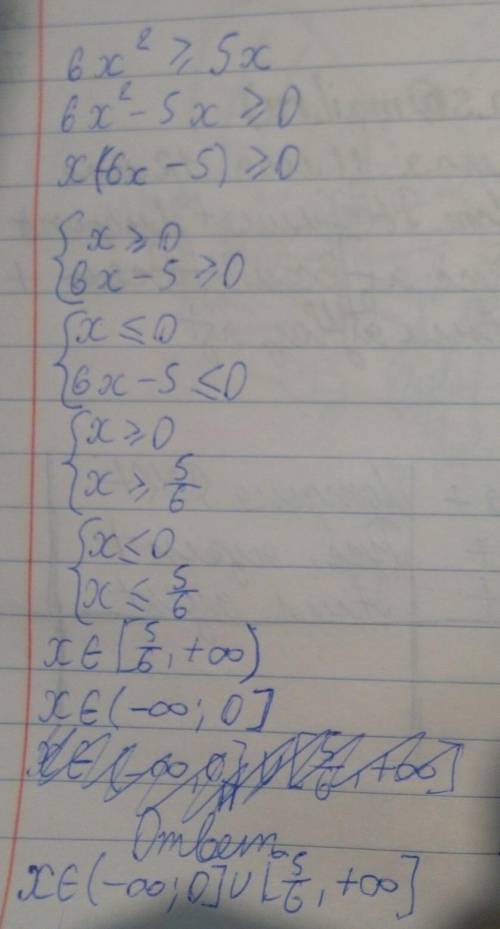 6x² ≥ 5x
6x² - 5x ≥ 0
x(6x - 5) ≥ 0
{ x ≥ 0
6x - 5 ≥ 0
{ x ≤ 0
6x - 5 ≤ 0
{ x ≥ 0
x ≥ 5/6
{ x ≤ 0
x ≤ 5/6
x ∈ [5/6, +∞)
x ∈ (-∞; 0]
x ∈ (-∞, 0] U [5/6, +∞]
Ответ
x ∈ (-∞; 0] U [5/6, +∞]